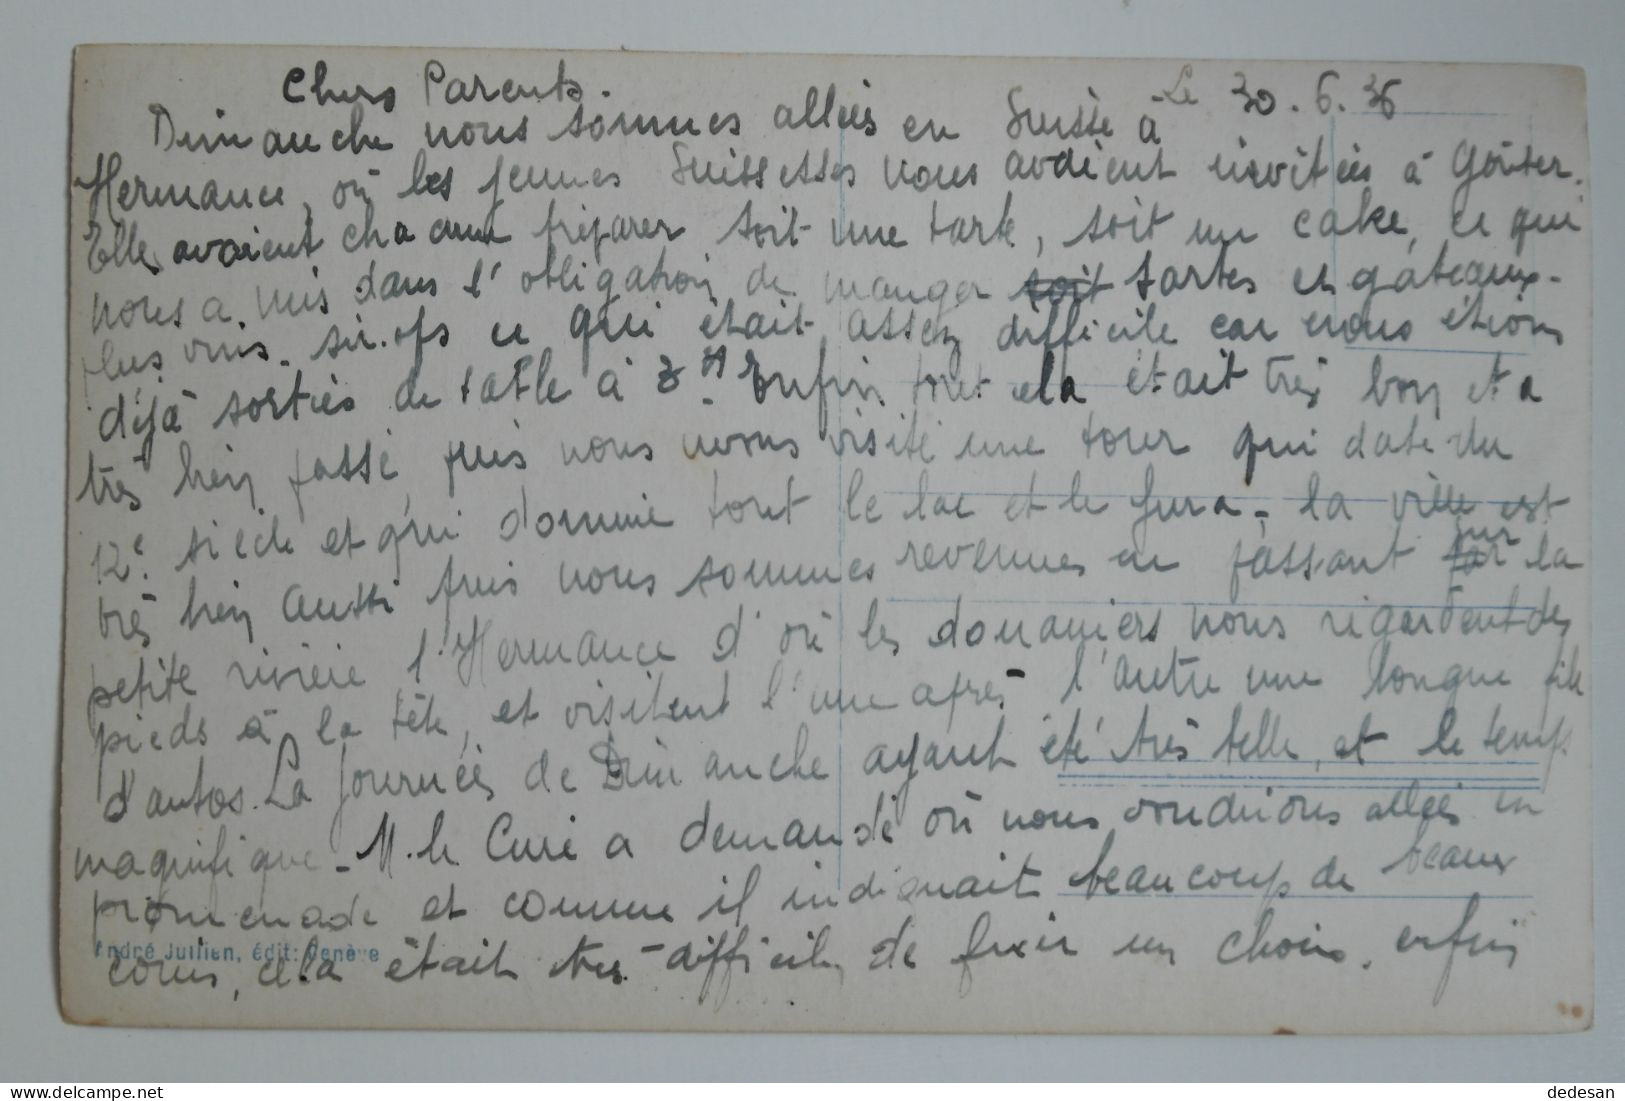 Le 30.6.36
Chers Parents.
Dimanche nous sommes allées en Suisse à
Hermance, où les jeunes Suissesses nous avaient invitées à goûter.
Elles avaient chacune préparer soit une tarte, soit un cake, ce qui
nous a mis dans l'obligation de manger soit tartes et gateaux.
plus vins. sirops ce qui était assez difficile car nous étions
déjà sorties de table à 3H Enfin tout cela était très bon et a
très bien passé, puis nous avons visité une tour qui date du
12e siècle et qui domine tout le lac et le Jura. la ville est
très bien aussi puis nous sommes revenues en passant sur la
petite rivière l'Hermance d'où les douaniers nous regardent des
pieds à la tête, et visitent l'une après l'autre une longue file
d'autos. La journée de Dimanche ayant été très belle, et le temps
magnifique. M. le Curé a demandé où nous voudrions allées en
promenade et comme il indiquait beaucoup de beaux
coins, cela était très difficile de fixer un choix. enfin
André Jullien, édit. Genève
dedesan